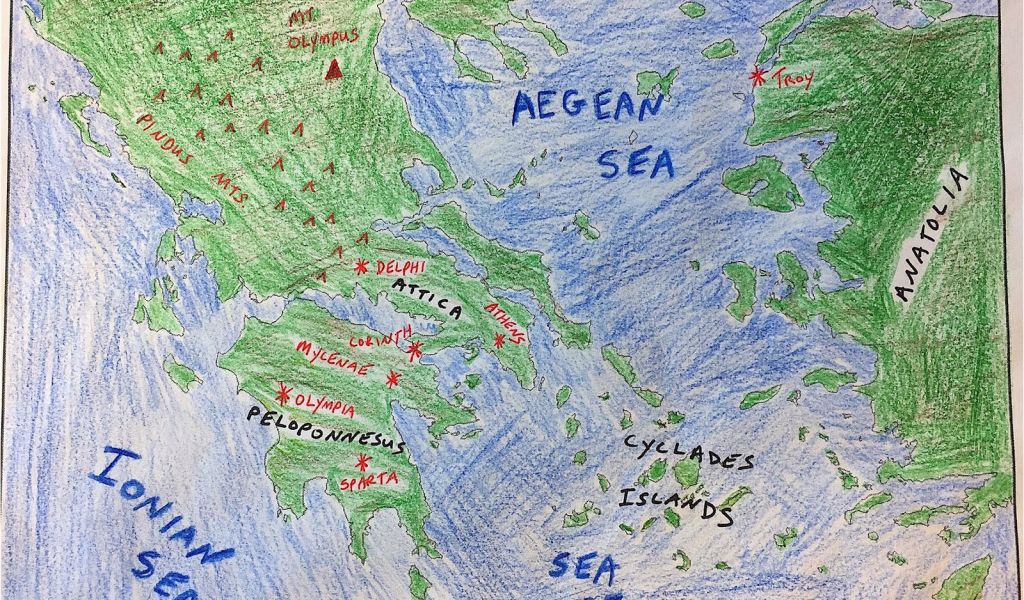 MT.
OLYMPUS
AEGEAN
SEA
TROY
PINDUS MTS
ANATOLIA
DELPHI
ATTICA
ATHENS
CORINTH
MYCENAE
OLYMPIA
PELOPONNESUS
SPARTA
CYCLADES
ISLANDS
IONIAN
SEA
SEA